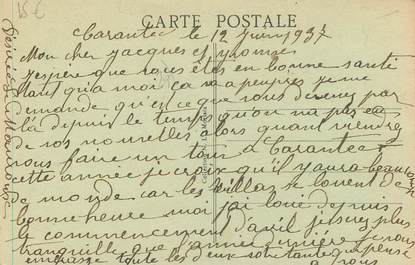 15€
CARTE POSTALE
Carantec le 12 Juin 1937
Mon cher Jacques et Yvonne
J'espère que vous êtes en bonne santé
tant qu'à moi ça va a peu près je me
demande qu'est ce que vous devenez par
là depuis le temps qu'on na pas eu
de vos nouvelles alors quant viendrez
vous faire un tour a Carantec
cette année je crois qu'il y aura beaucoup
de monde car les villas se louent de
bonne heure moi j'ai loué depuis
le commencement d'avril je serez plus
tranquille que l'année dernière je vous
embrasse toute les deux
Désirée